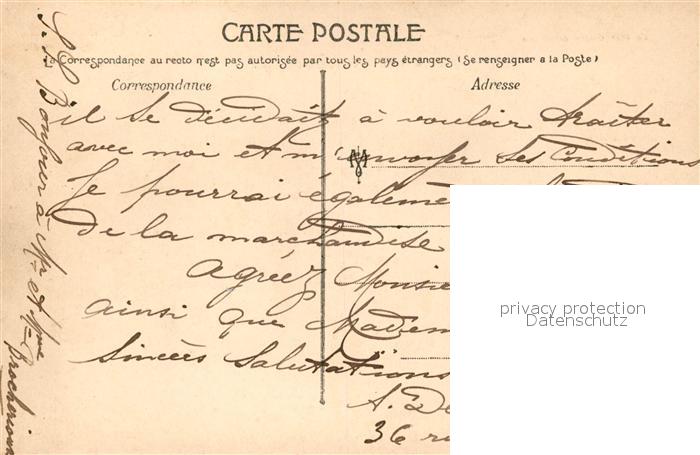 CARTE POSTALE
La Correspondance au recto n'est pas autorisée par tous les pays étrangers (Se renseigner a la Poste)
Correspondance
Adresse
il se décidait à vouloir traiter
avec moi et m'envoyer ses Conditions
Je pourrai égaleme
De la marchandise
Agréez Monsie
ainsi que Madem
Sincères Salutations
A. De
36 ru
privacy protection
Datenschutz
Bonjour à Mr et Mme